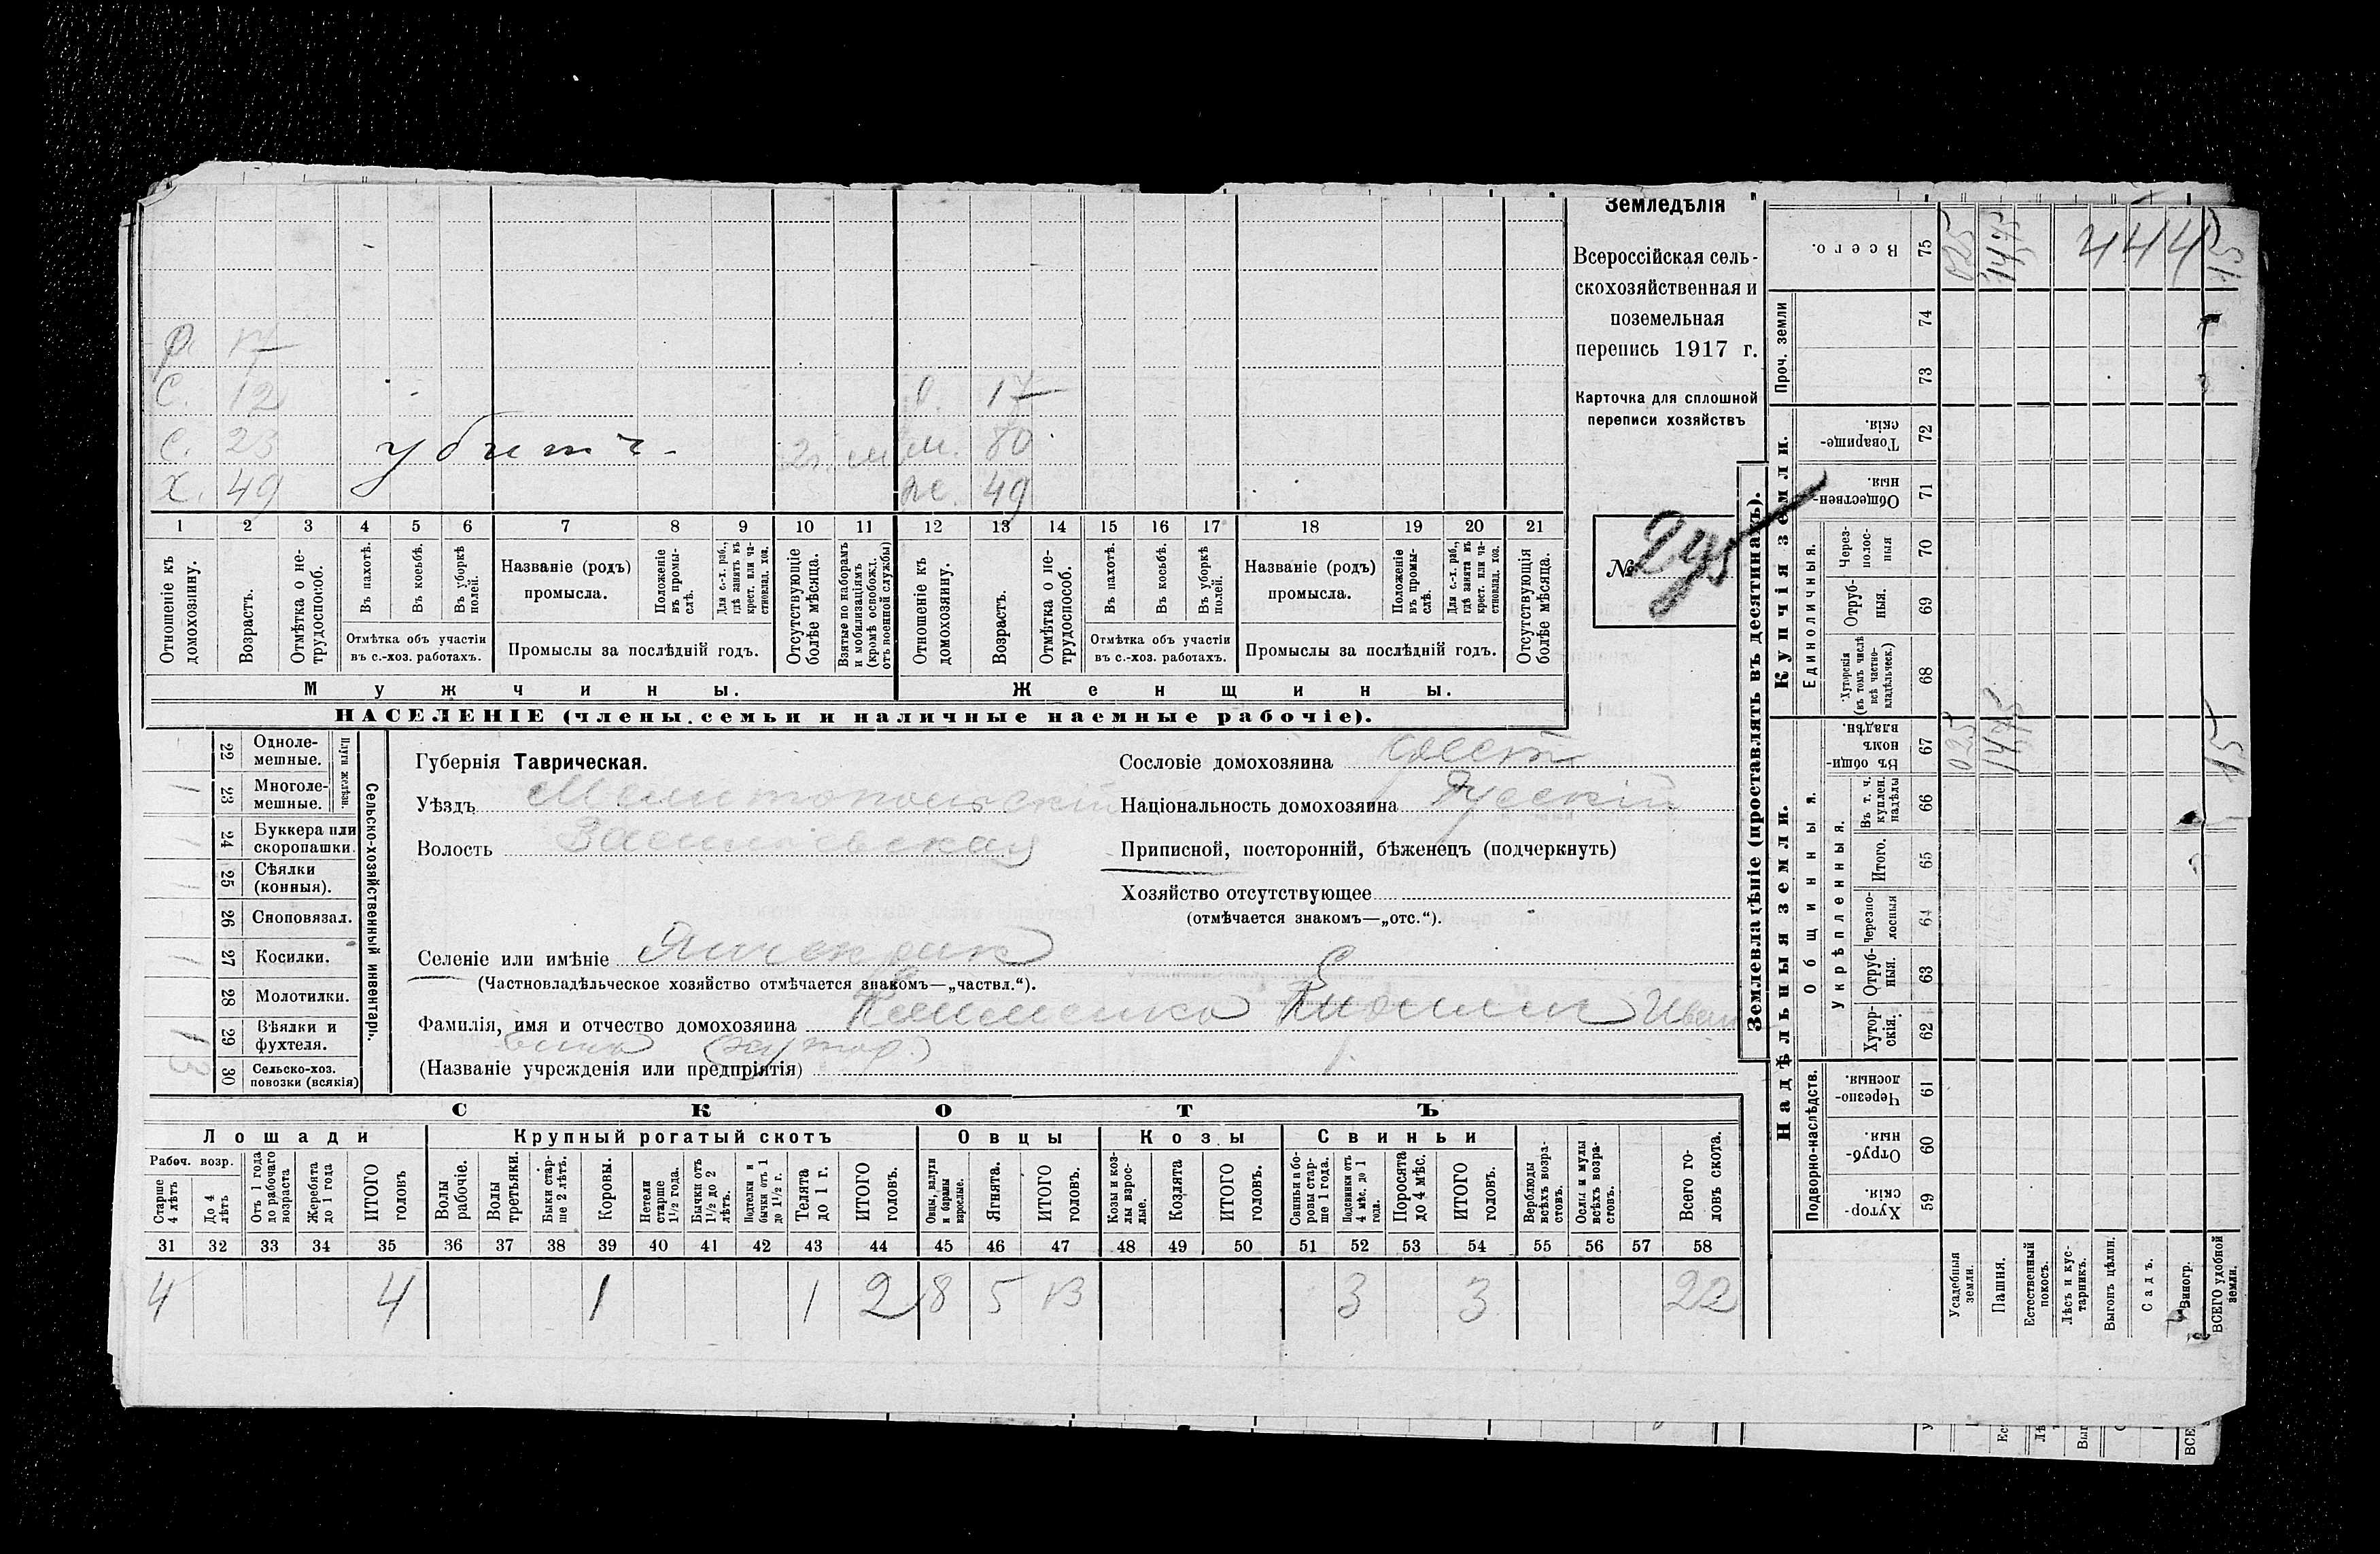 Земледѣлія
Всероссійская сель-
скохозяйственная и
поземельная
перепись 1917 г.
Карточка для сплошной
переписи хозяйствъ
№
С. 12
17
С. 23 убитъ 2 г. м. 80
Х. 49 ж. 49
1 2 3 4 5 6 7 8 9 10 11 12 13 14 15 16 17 18 19 20 21
Отношеніе къ домохозяину.
Возрастъ.
Отмѣтка о не-трудоспособ.
Въ пахотѣ.
Въ косьбѣ.
Въ уборкѣ полей.
Отмѣтка объ участіи
въ с.-хоз. работахъ.
Названіе (родъ)
промысла.
Положеніе въ промы-слѣ.
Для с.-х. раб., гдѣ занятъ въ крест. или ча-стновлад. хоз.
Промыслы за послѣдній годъ.
Отсутствующіе болѣе мѣсяца.
Взятые по наборамъ и мобилизаціямъ (кромѣ освобожд. отъ военной службы)
Отношеніе къ домохозяину.
Возрастъ.
Отмѣтка о не-трудоспособ.
Въ пахотѣ.
Въ косьбѣ.
Въ уборкѣ полей.
Отмѣтка объ участіи
въ с.-хоз. работахъ.
Названіе (родъ)
промысла.
Положеніе въ промы-слѣ.
Для с.-х. раб., гдѣ занята въ крест. или ча-стновлад. хоз.
Промыслы за послѣдній годъ.
Отсутствующія болѣе мѣсяца.
Мужчины.
Женщины.
НАСЕЛЕНІЕ (члены семьи и наличные наемные рабочіе).
Сельско-хозяйственный инвентарь.
Плуги желѣзн.
22 Одноле-мешные.
23 Многоле-мешные. 1
24 Буккера или скоропашки. 1
25 Сѣялки (конныя). 1
26 Сноповязал.
27 Косилки. 1
28 Молотилки.
29 Вѣялки и фухтеля. 1
30 Сельско-хоз. повозки (всякія) 3
Губернія Таврическая.
Уѣздъ Мелитопольскій
Волость Васильевская
Селеніе или имѣніе
(Частновладѣльческое хозяйство отмѣчается знакомъ—„частвл.“).
Фамилія, имя и отчество домохозяина Иван
(хутор.)
(Названіе учрежденія или предпріятія)
Сословіе домохозяина крест
Національность домохозяина Русскій
Приписной, посторонній, бѣженецъ (подчеркнуть)
Хозяйство отсутствующее
(отмѣчается знакомъ—„отс.“).
СКОТЪ
Лошади
Крупный рогатый скотъ
Овцы
Козы
Свиньи
Рабоч. возр.
Старше 4 лѣтъ
До 4 лѣтъ
Отъ 1 года до рабочаго возраста
Жеребята до 1 года
ИТОГО головъ
Волы рабочіе.
Волы третьяки.
Быки стар-ше 2 лѣтъ.
Коровы.
Нетели старше 1½ года.
Бычки отъ 1½ до 2 лѣтъ.
Подтелки и бычки отъ 1 до 1½ г.
Телята до 1 г.
ИТОГО головъ.
Овцы, валухи и бараны взрослые.
Ягнята.
ИТОГО головъ.
Козы и коз-лы взрос-лые.
Козлята
ИТОГО головъ.
Свиньи и бо-ровы стар-ше 1 года.
Подсвинки отъ 4 мѣс. до 1 года.
Поросята до 4 мѣс.
ИТОГО головъ.
Верблюды всѣхъ возра-стовъ.
Ослы и мулы всѣхъ возра-стовъ.
Всего го-ловъ скота.
31 32 33 34 35 36 37 38 39 40 41 42 43 44 45 46 47 48 49 50 51 52 53 54 55 56 57 58
4 4 1 1 2 8 5 13 3 3 22
Землевладѣніе (проставлять въ десятинахъ).
Надѣльныя земли.
Купчія земли.
Проч. земли
Подворно-наслѣдств.
Общинныя.
Укрѣпленныя.
Единоличныя.
Всего. 75
74
73
Товарище-скія. 72
Обществен-ныя. 71
Через-полос-ныя 70
Отруб-ныя. 69
Хуторскія (въ томъ числѣ всѣ частно-владѣльческ.) 68
Въ общин-номъ владѣн. 67
Въ т. ч. куплен. надѣлы 66
Итого. 65
Черезпо-лосныя 64
Отруб-ныя. 63
Хутор-скія. 62
Черезпо-лосныя. 61
Отруб-ныя. 60
Хутор-скія. 59
Усадебныя земли. 025 025
Пашня. 1475 1475
Естественный покосъ.
Лѣсъ и кус-тарникъ.
Выгонъ цѣлин.
Садъ.
Виногр.
ВСЕГО удобной земли. 15 15